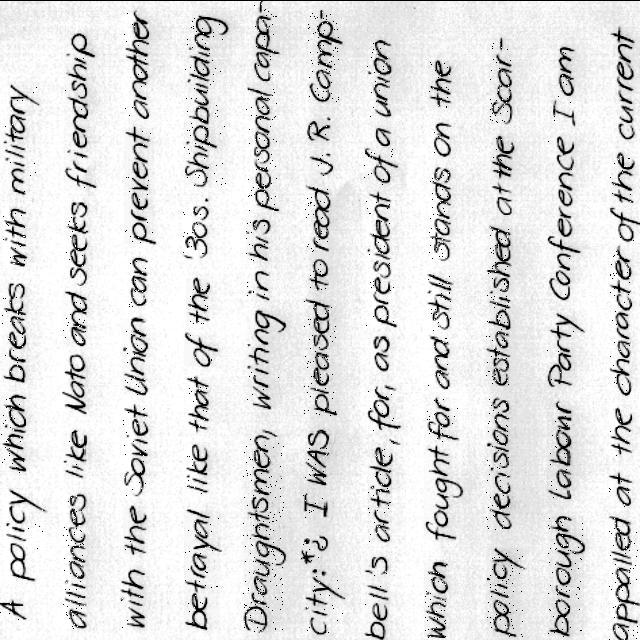 A policy which breaks with military
alliances like Nato and seeks friendship
with the Soviet Union can prevent another
betrayal like that of the '30s. Shipbuilding
Draughtsmen, writing in his personal capa-
city: *¿ I WAS pleased to read J. R. Camp-
bell's article, for, as president of a union
which fought for and still stands on the
policy decisions established at the Scar-
borough Labour Party Conference I am
appalled at the character of the current